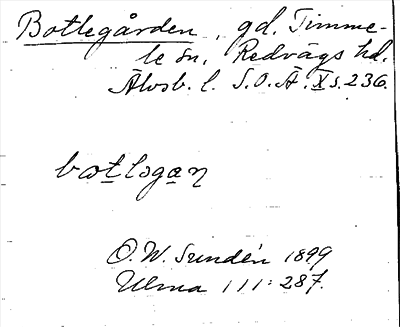 Botlegården, gd. Timme-
le sn, Redvägs hd.
Älvsb. l. S.O.Ä. X s. 236.
botlogaŋ
O.W. Sundén 1899
Ulma 111:287.